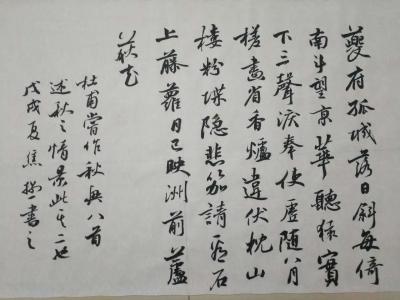 夔府孤城落日斜每倚
南斗望京華聽猿實
下三聲淚奉使虛隨八月
槎畫省香爐違伏枕山
樓粉堞隐悲笳請看石
上藤蘿月已映洲前蘆
荻花
杜甫嘗作秋興八首
述秋之情景此其二也
戊戌夏焦 書之